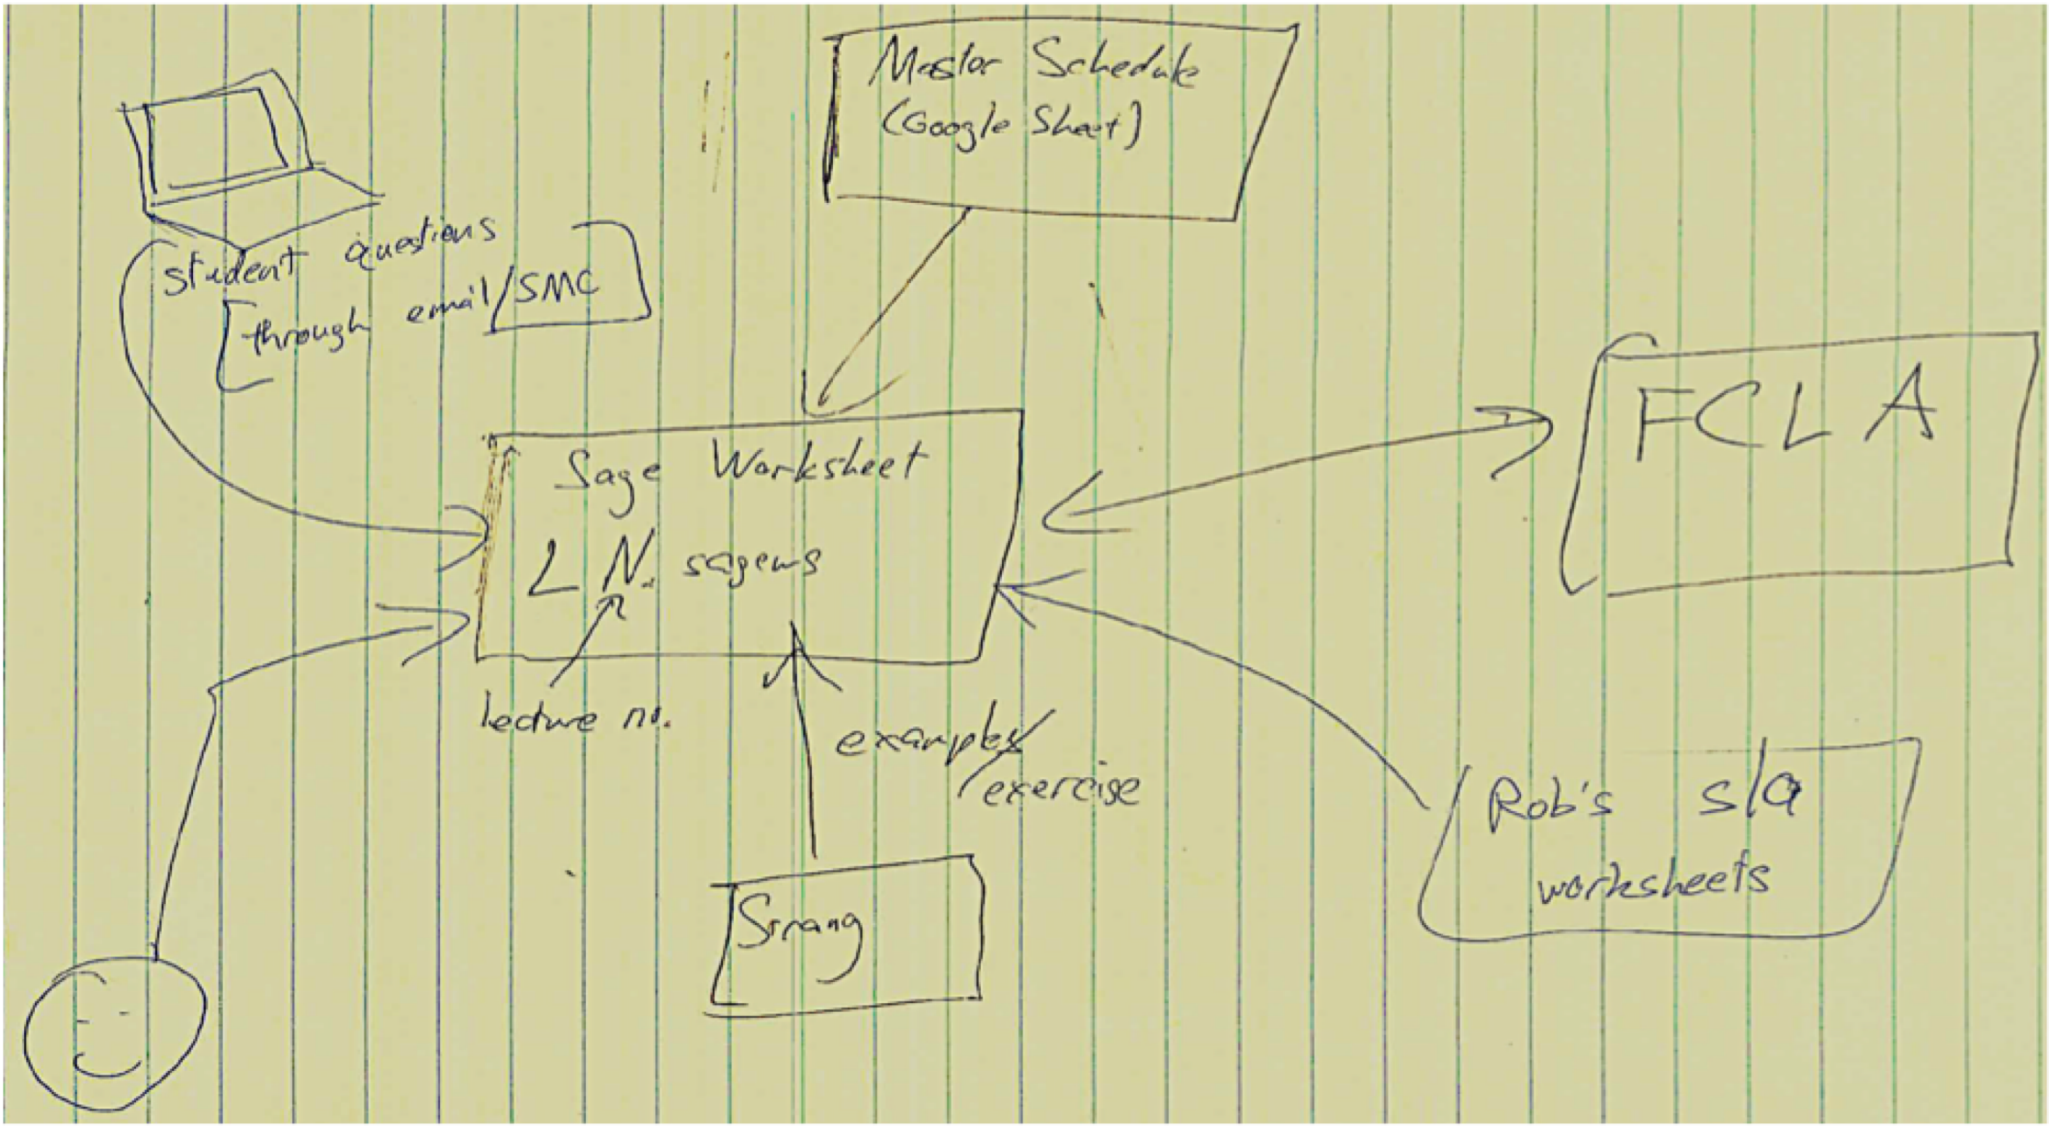 Master Schedule
(Google Sheet)
student questions
through email/SMC
FCLA
Sage Worksheet
L N. sagews
lecture no.
examples/
exercise
Rob's s/a
worksheets
Strang